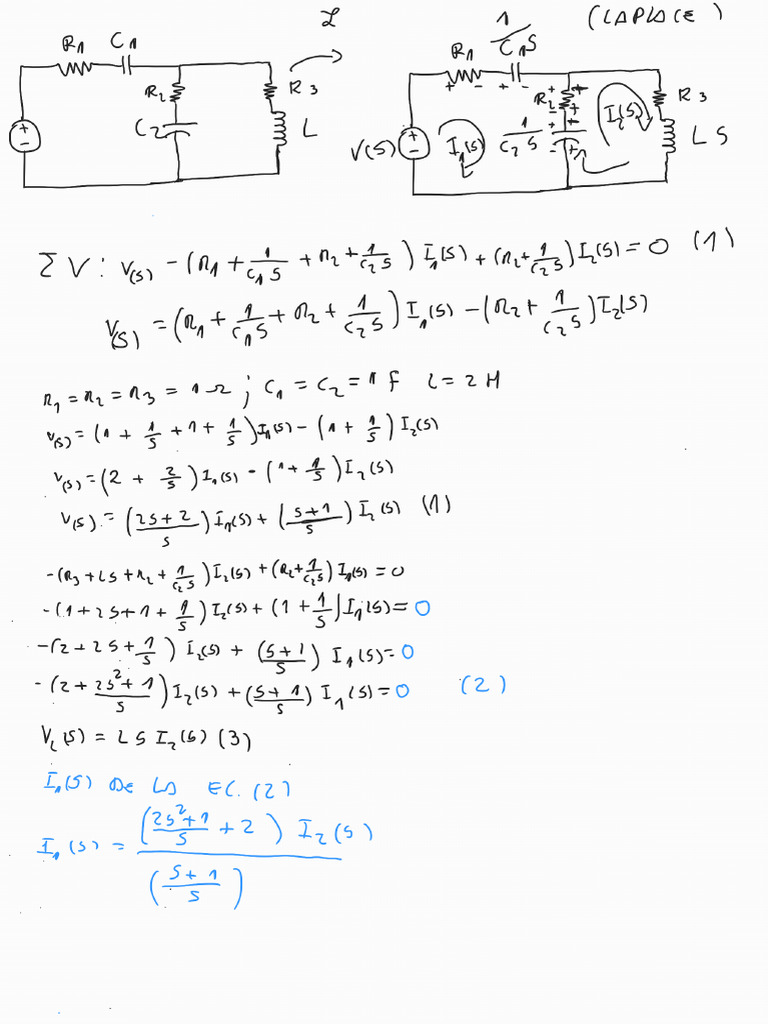 ℒ
(LAPLACE)
R₁ C₁
R₂
C₂
R₃
L
R₁ 1/C₁S
+ - + -
V(S)
I₁(S)
R₂
1/C₂S
I₂(S)
R₃
LS
ΣV: V(S) - (R₁ + 1/C₁S + R₂ + 1/C₂S) I₁(S) + (R₂ + 1/C₂S) I₂(S) = 0 (1)
V(S) = (R₁ + 1/C₁S + R₂ + 1/C₂S) I₁(S) - (R₂ + 1/C₂S) I₂(S)
R₁ = R₂ = R₃ = 1Ω ; C₁ = C₂ = 1 F L = 2 H
V(S) = (1 + 1/S + 1 + 1/S) I₁(S) - (1 + 1/S) I₂(S)
V(S) = (2 + 2/S) I₁(S) - (1 + 1/S) I₂(S)
V(S) = ((2S+2)/S) I₁(S) + ((S+1)/S) I₂(S) (1)
-(R₃ + LS + R₂ + 1/C₂S) I₂(S) + (R₂ + 1/C₂S) I₁(S) = 0
-(1 + 2S + 1 + 1/S) I₂(S) + (1 + 1/S) I₁(S) = 0
-(2 + 2S + 1/S) I₂(S) + ((S+1)/S) I₁(S) = 0
-(2 + (2S²+1)/S) I₂(S) + ((S+1)/S) I₁(S) = 0 (2)
V_L(S) = LS I₂(S) (3)
I₁(S) DE LA EC. (2)
I₁(S) = ((2S²+1)/S + 2) I₂(S) / ((S+1)/S)